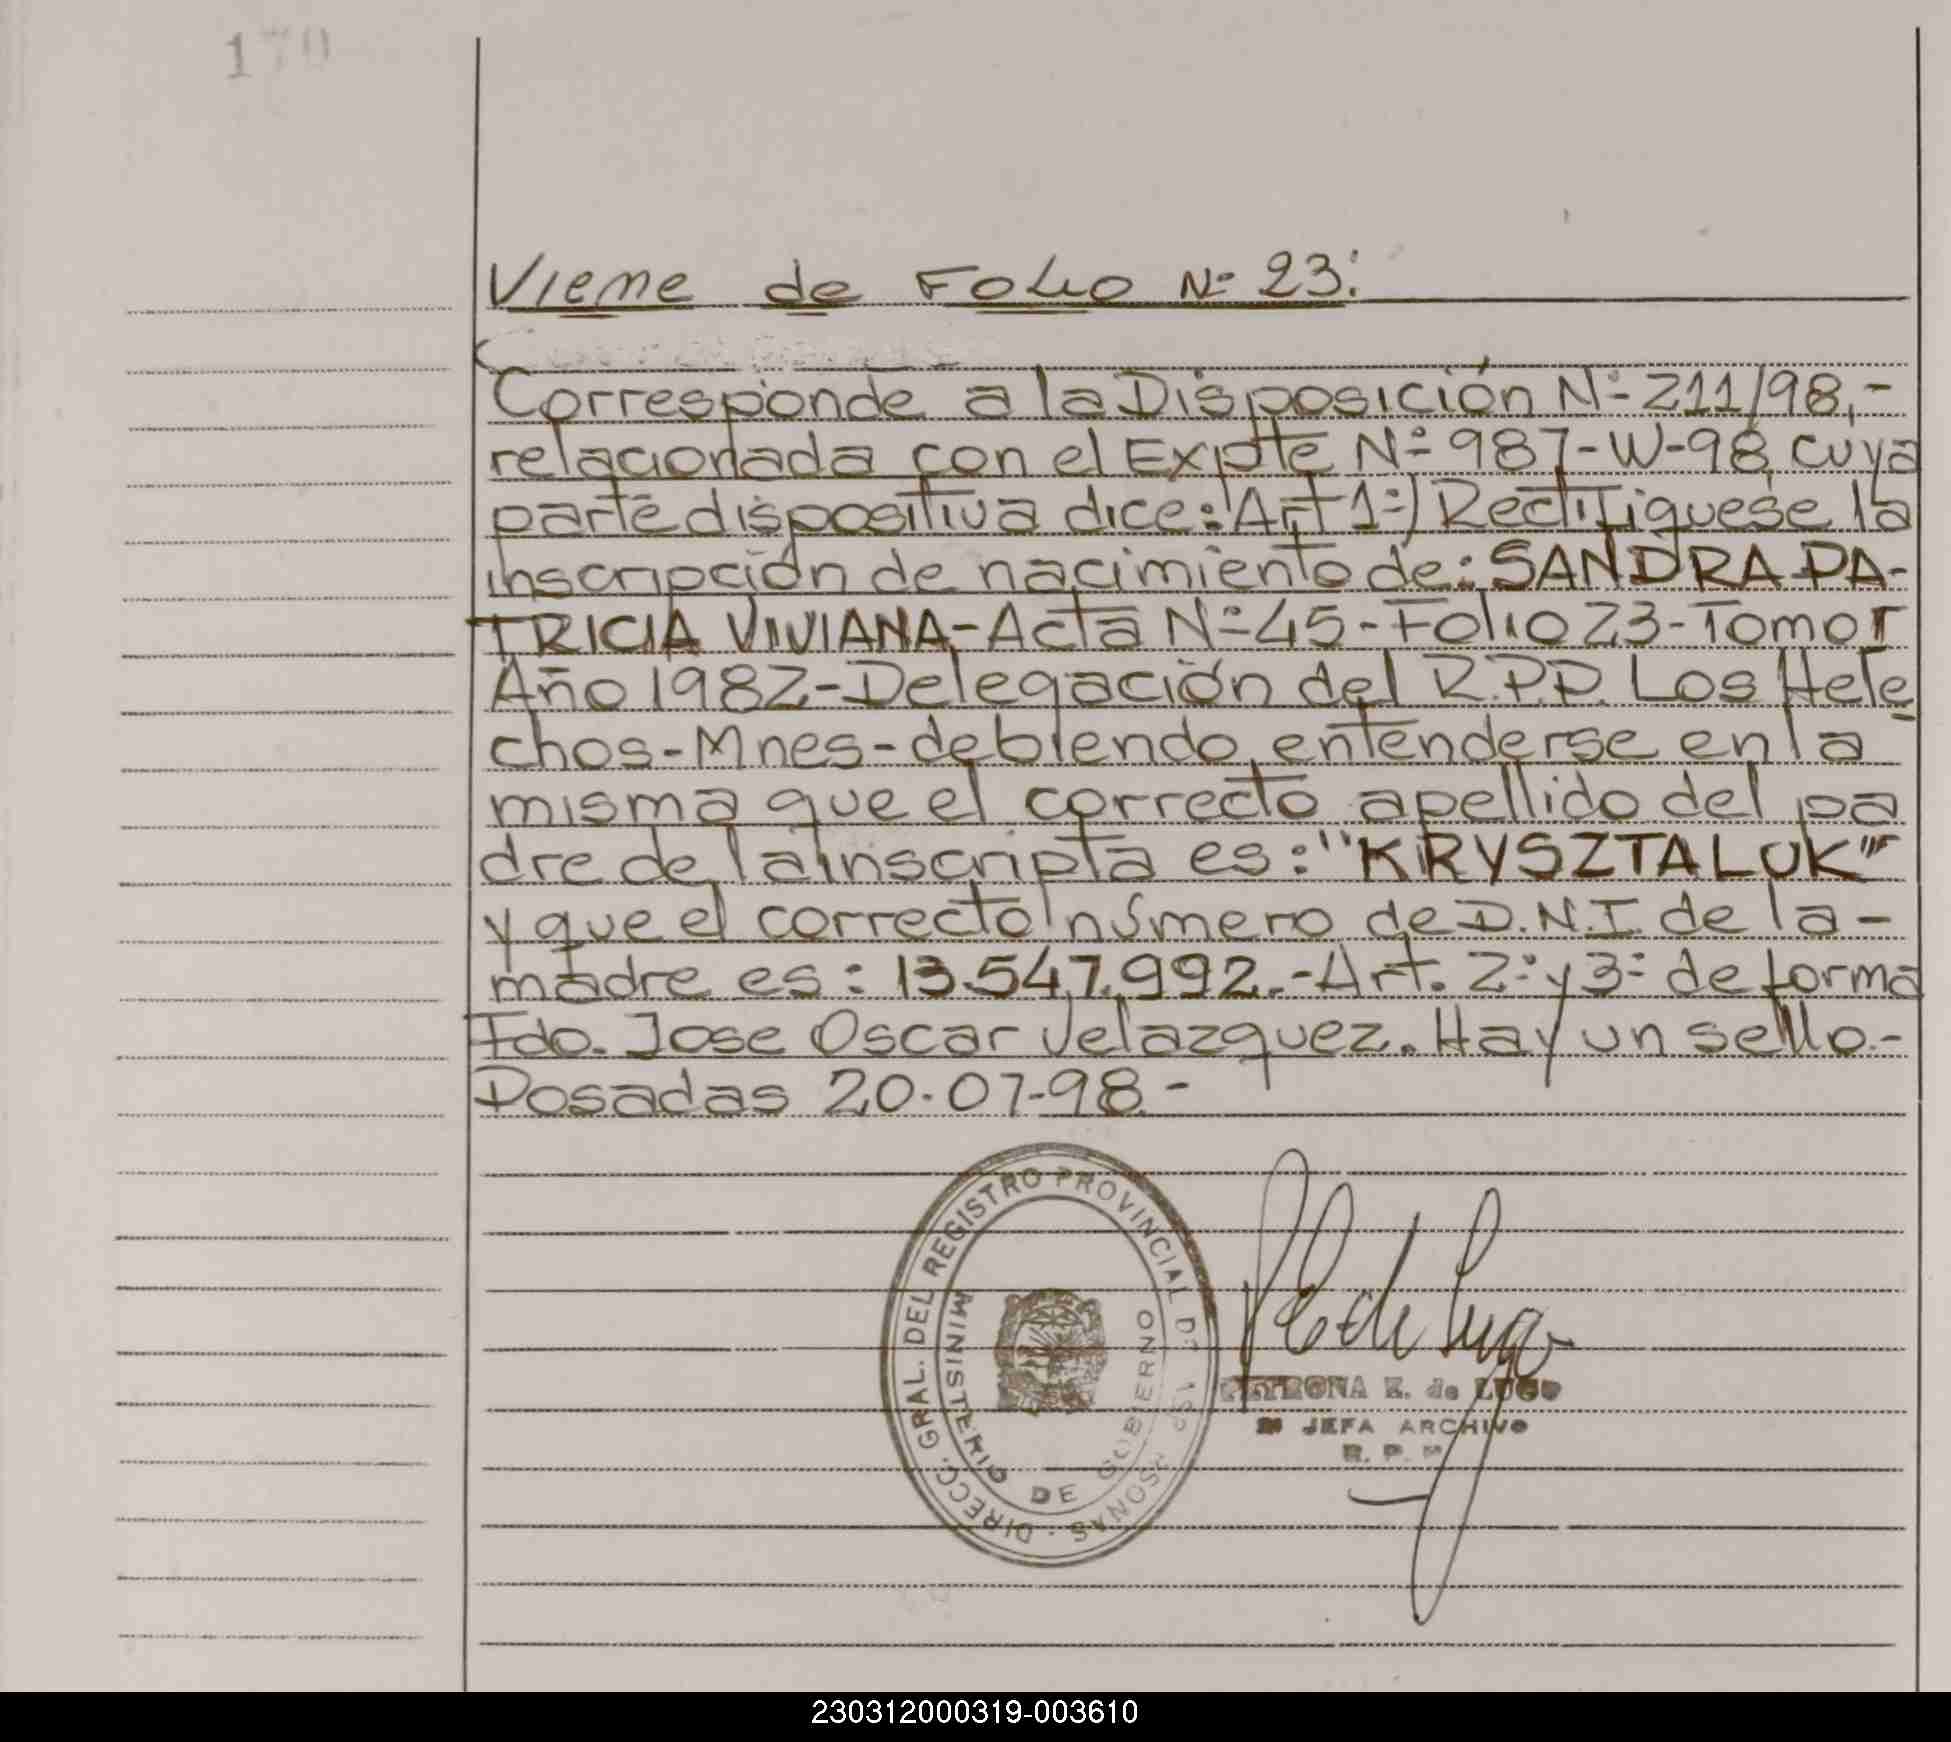 170
Viene de Folio Nº 23:
Corresponde a la Disposición Nº 211/98,-
relacionada con el Expte Nº 987-W-98 cuya
parte dispositiva dice: "Art 1º) Rectifiquese la
inscripción de nacimiento de: SANDRA PA-
TRICIA VIVIANA-Acta Nº 45-Folio 23-Tomo I
Año 1982-Delegación del R.P.P. Los Hele
chos-Mnes-debiendo entenderse en la
misma que el correcto apellido del pa
dre de la inscripta es: "KRYSZTALUK"
y que el correcto número de D.N.I. de la-
madre es: 13.547.992.-Art. 2º y 3º de forma
Fdo. Jose Oscar Velazquez. Hay un sello.-
Posadas 20-07-98-
DIRECC. GRAL. DEL REGISTRO PROVINCIAL DE LAS PERSONAS
MINISTERIO DE GOBIERNO
PETRONA E. de LUGO
JEFA ARCHIVO
R. P. P.
230312000319-003610